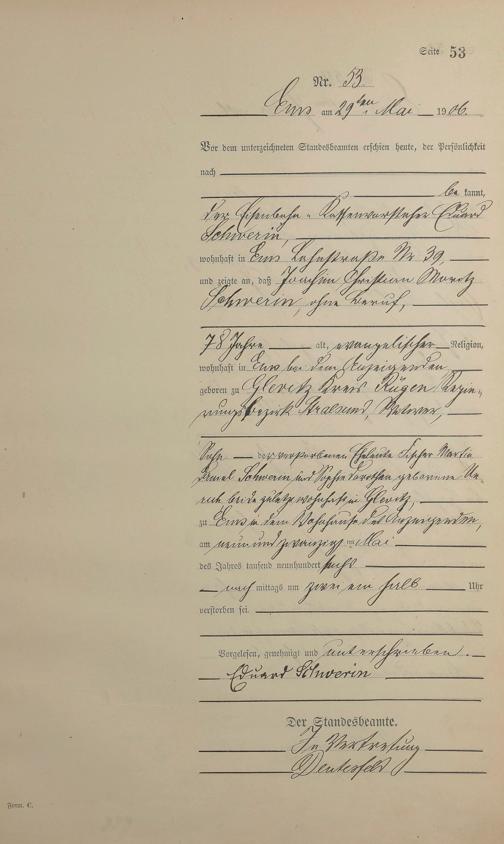 Seite 53
Nr. 53
Ems am 29ten Mai 1906.
Vor dem unterzeichneten Standesbeamten erschien heute, der Persönlichkeit
nach
be kannt,
der Eisenbahn-Kassenvorsteher Eduard
Schwerin,
wohnhaft in Ems Lahnstraße Nr. 39,
und zeigte an, daß Joachim Christian Moritz
Schwerin, ohne Beruf,
78 Jahre alt, evangelischer Religion,
wohnhaft in Ems bei dem Anzeigenden
geboren zu Glewitz Kreis Rügen Regie-
rungsbezirk Stralsund, Witwer,
Sohn der verstorbenen Eheleute Fischer Martin
Schwerin und Sophie Dorothea geborene
beide zuletzt wohnhaft in Glewitz,
zu Ems in dem Wohnhause des Anzeigenden,
am neunundzwanzigsten Mai
des Jahres tausend neunhundert sechs
nach mittags um zwei ein halb Uhr
verstorben sei.
Vorgelesen, genehmigt und unterschrieben.
Eduard Schwerin
Der Standesbeamte.
In Vertretung
Form. C.